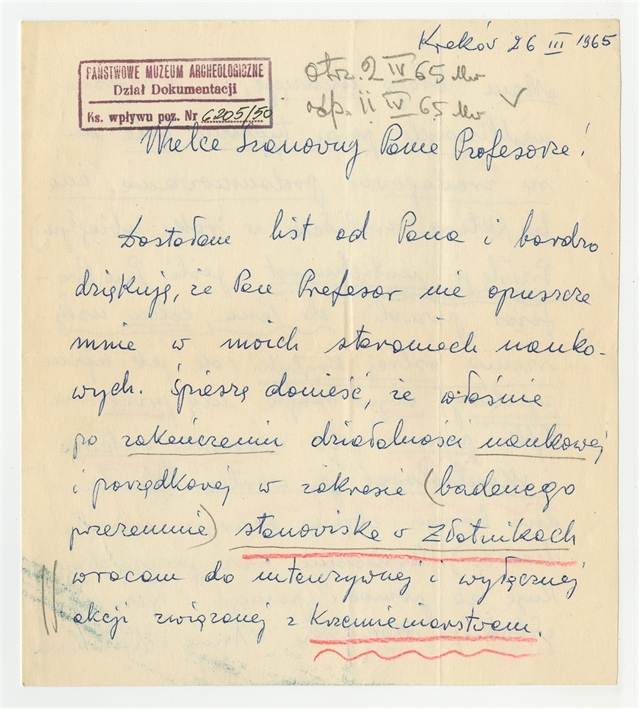 Kraków 26 III 1965
PAŃSTWOWE MUZEUM ARCHEOLOGICZNE
Dział Dokumentacji
Ks. wpływu poz. Nr 6205/50
otrz. 2 IV 65
odp. II IV 65
Wielce Szanowny Panie Profesorze!
Dostałam list od Pana i bardzo
dziękuję, że Pan Profesor nie opuszcza
mnie w moich staraniach nauko-
wych. Śpieszę donieść, że właśnie
po zakończeniu działalności naukowej
i porządkowej w zakresie (badanego
przezemnie) stanowiska w Złotnikach
wracam do intenzywnej i wyłącznej
akcji związanej z Krzemieniarstwem.